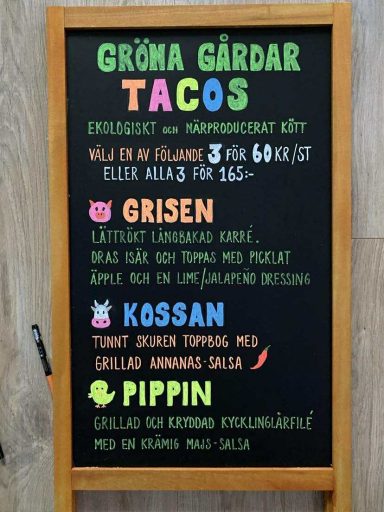 GRÖNA GÅRDAR
TACOS
EKOLOGISKT OCH NÄRPRODUCERAT KÖTT
VÄLJ EN AV FÖLJANDE 3 FÖR 60 KR/ST
ELLER ALLA 3 FÖR 165:-
GRISEN
LÄTTRÖKT LÅNGBAKAD KARRÉ.
DRAS ISÄR OCH TOPPAS MED PICKLAT
ÄPPLE OCH EN LIME/JALAPEÑO DRESSING
KOSSAN
TUNNT SKUREN TOPPBOG MED
GRILLAD ANNANAS-SALSA
PIPPIN
GRILLAD OCH KRYDDAD KYCKLINGLÅRFILÉ
MED EN KRÄMIG MAJS-SALSA